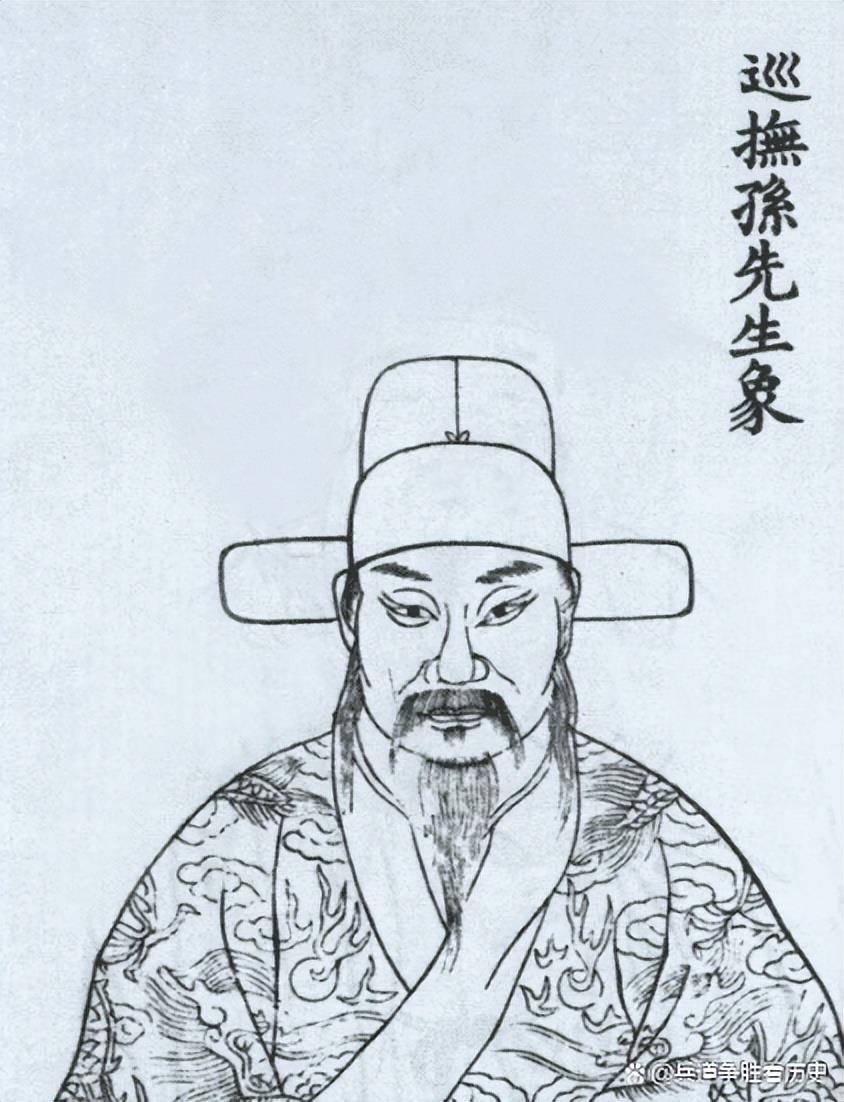 巡撫孫先生象
@兵道争胜者历史